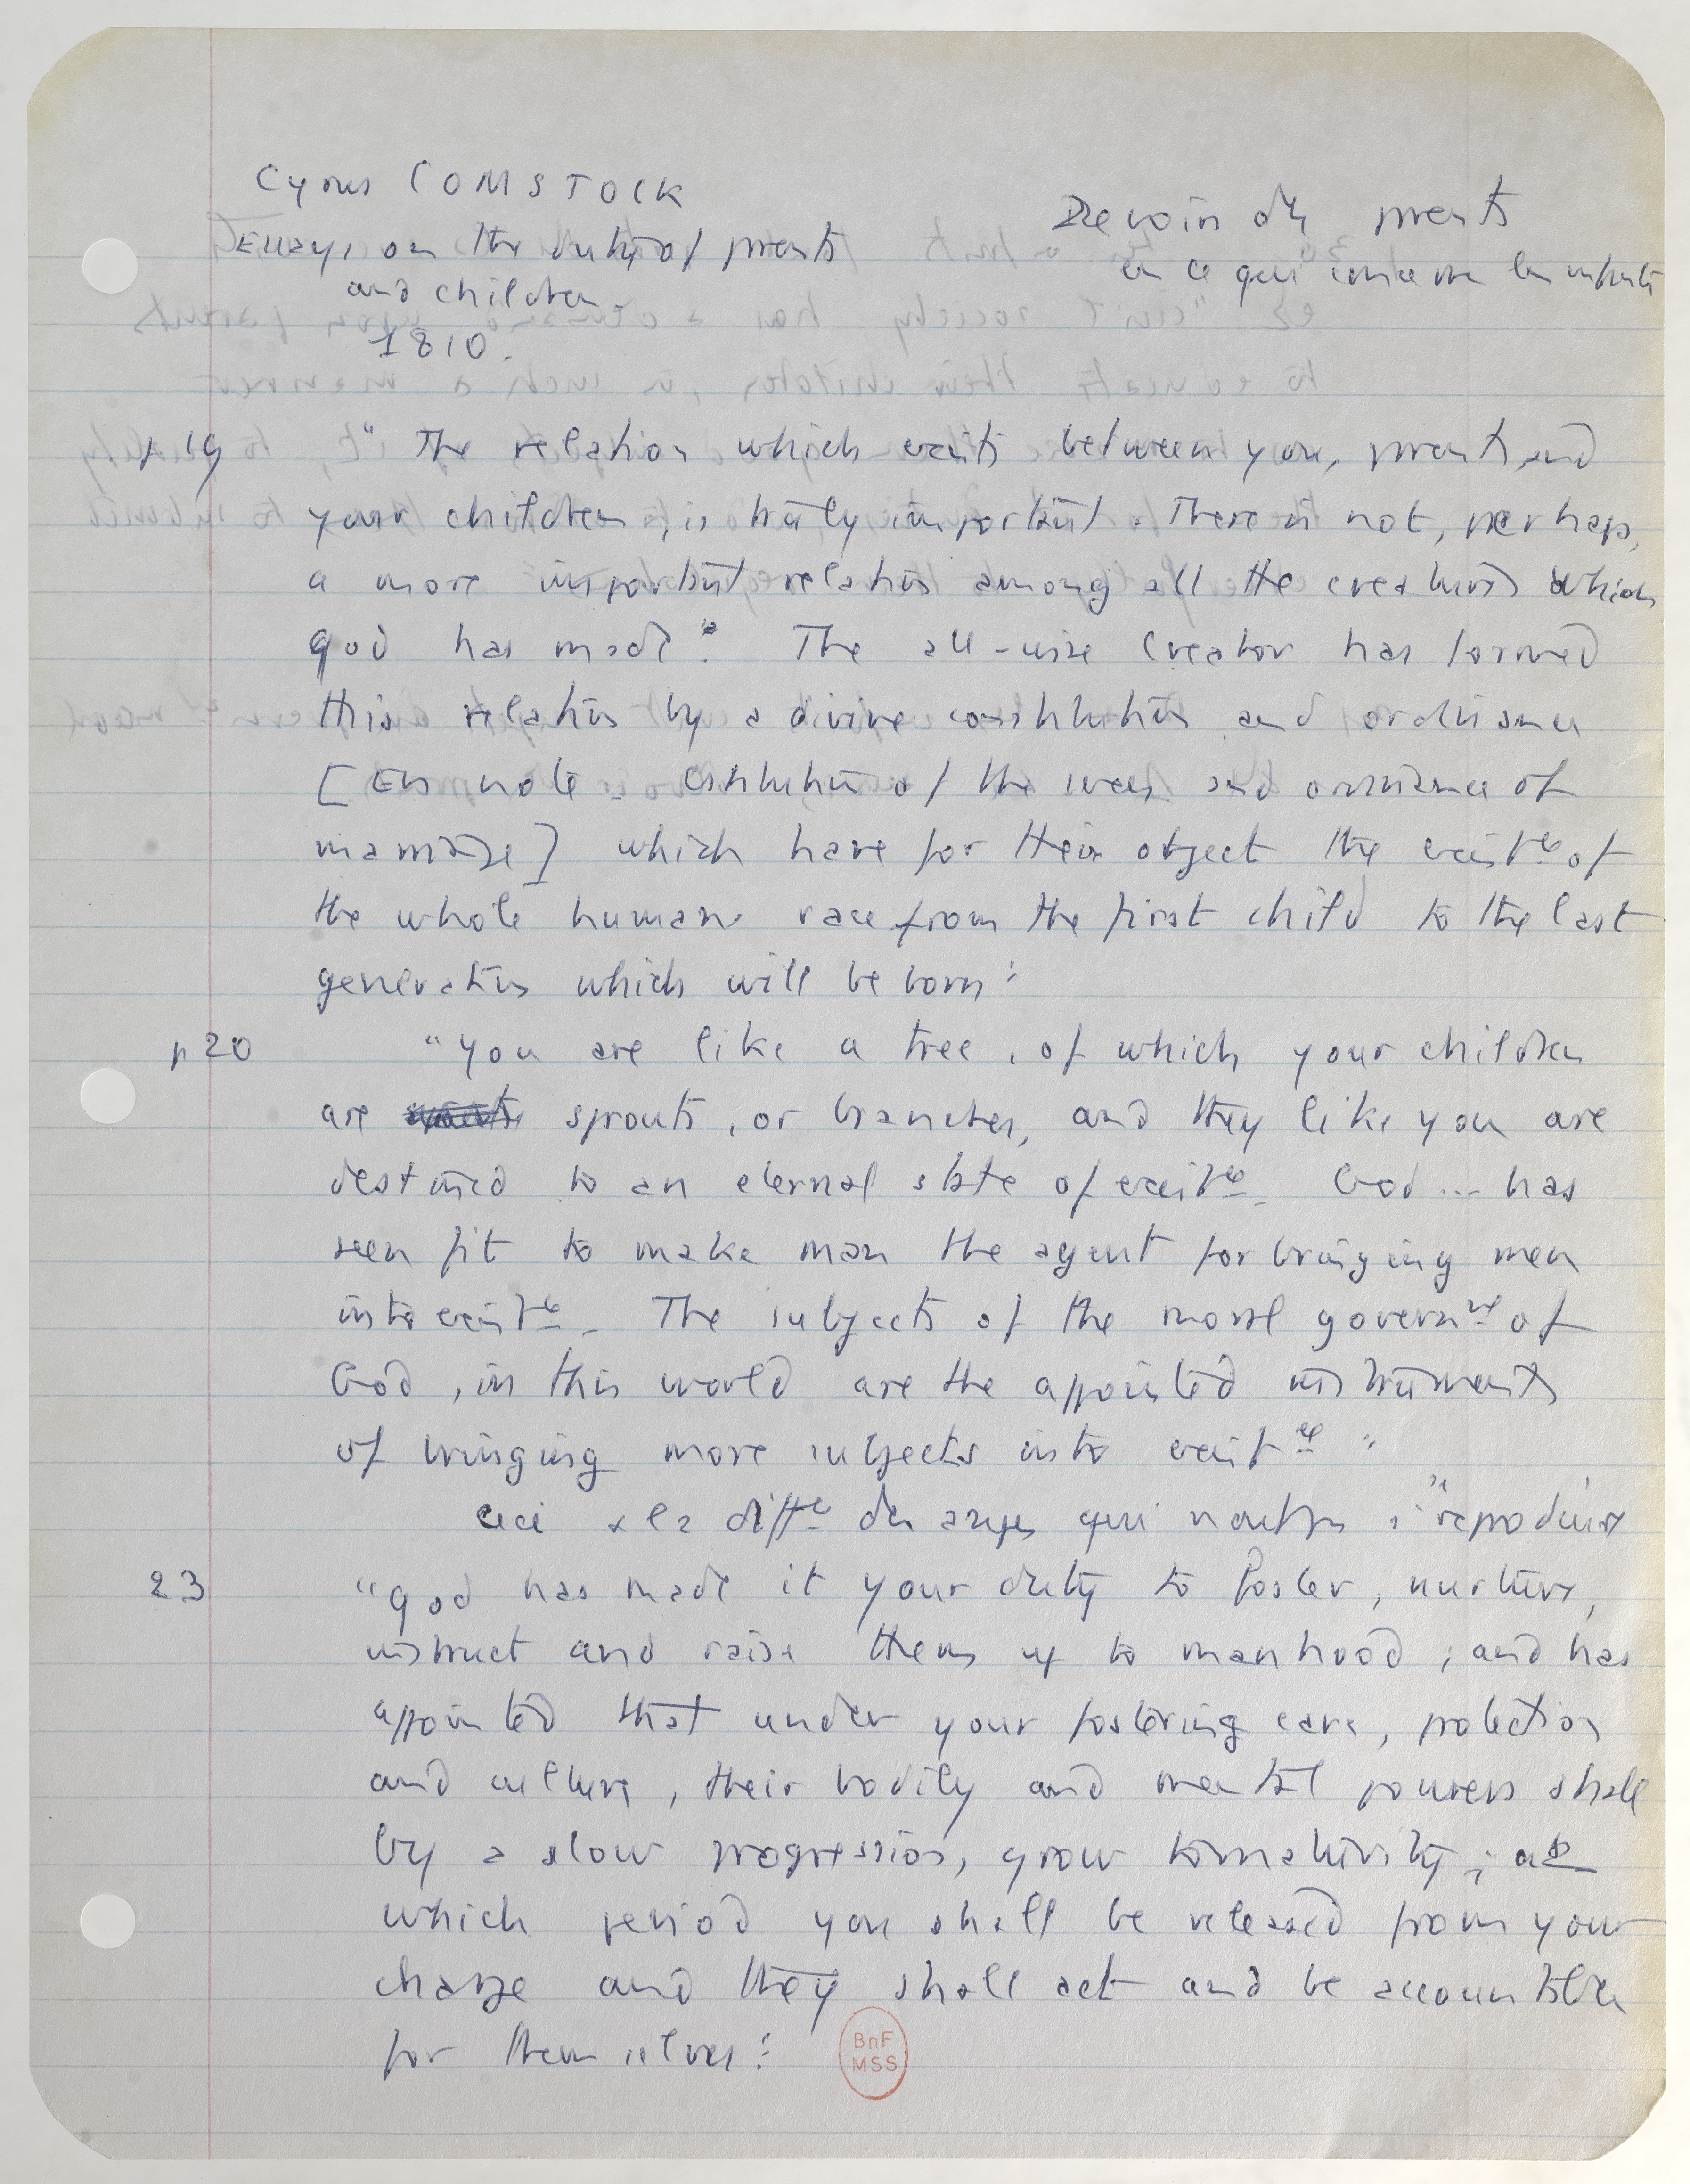 Cyrus COMSTOCK
Essays on the duty of parents
and children.
1810.
Devoirs des parents
en ce qui concerne les enfants
p 19 "The relation which exists between you, parents, and
your children, is truly important. There is not, perhaps,
a more important relation among all the creatures which
god has made". The all-wise Creator has formed
this relation by a divine constitution and ordinance
[En note = constitution of the sexes and ordinance of
marriage] which have for their object the existce of
the whole human race from the first child to the last
generation which will be born".
p 20 "You are like a tree, of which your children
are sprouts, or branches, and they like you are
destined to an eternal state of existce. God ... has
seen fit to make man the agent for bringing men
into existce. The subjects of the moral governmt of
God, in this world are the appointed instruments
of bringing more subjects into existce"
Ceci à la diffce des anges qui
23 "god has made it your duty to foster, nurture,
instruct and raise them up to manhood; and has
appointed that under your fostering care, protection
and culture, their bodily and mental powers shall
by a slow progression, grow to maturity; at
which period you shall be released from your
charge and they shall act and be accountable
for themselves".
BnF
MSS